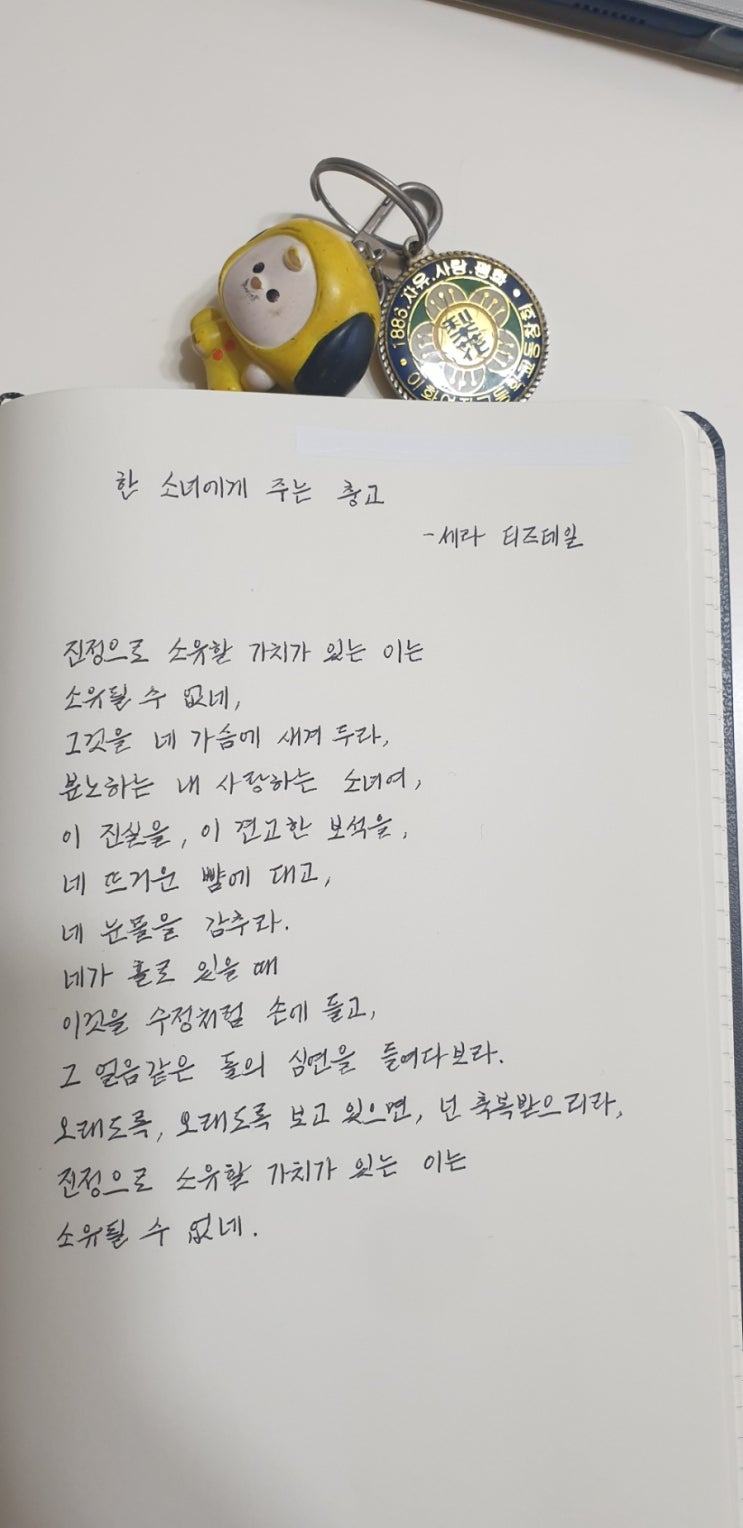 1885.자유.사랑.평화
한 소녀에게 주는 충고
-세라 티즈데일
진정으로 소유할 가치가 있는 이는
소유될 수 없네,
그것을 네 가슴에 새겨 두라,
분노하는 내 사랑하는 소녀여,
이 진실을, 이 견고한 보석을,
네 뜨거운 뺨에 대고,
네 눈물을 감추라.
네가 홀로 있을 때
이것을 수정처럼 손에 들고,
그 얼음같은 돌의 심연을 들여다보라.
오래도록, 오래도록 보고 있으면, 넌 축복받으리라,
진정으로 소유할 가치가 있는 이는
소유될 수 없네.